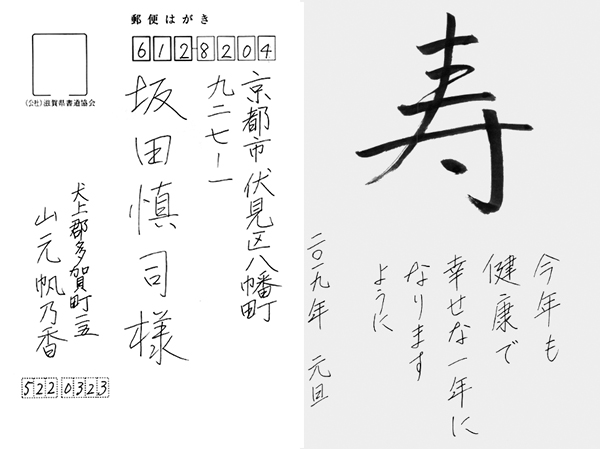 郵便はがき
612-8204
京都市伏見区八幡町
九二七-一
坂田慎司様
(公社)滋賀県書道協会
犬上郡多賀町一立
山元帆乃香
5220323
寿
今年も
健康で
幸せな一年に
なります
ように
二〇一九年 元旦